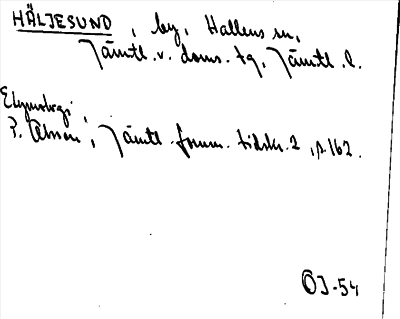 HÄLJESUND, by, Hallens sn,
Jämtl. v. doms. tg, Jämtl. l.
Etymologi:
P. Olsson, Jämtl. fornm. tidskr. 2, s. 162.
ÖJ-54